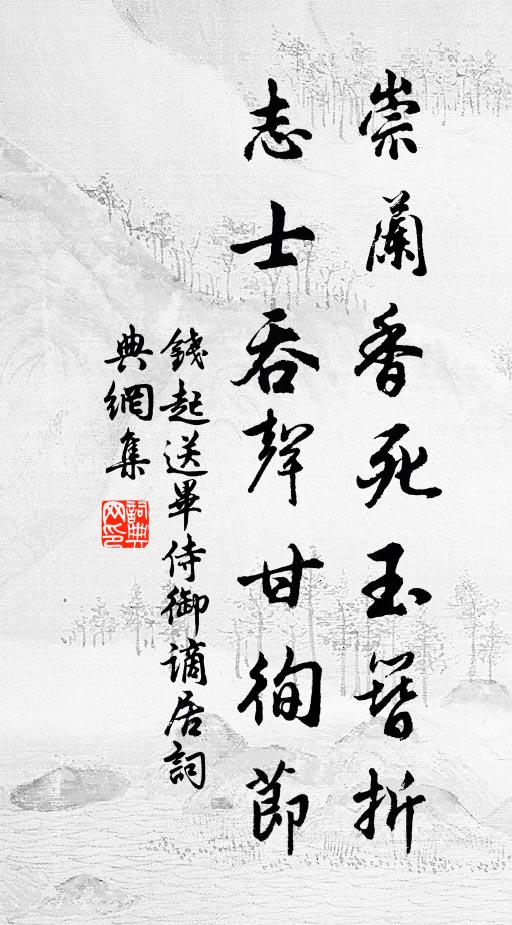 崇蘭香死玉簪折
志士吞聲甘徇節
錢起送畢侍御謫居詞
典網集
詞典
网印